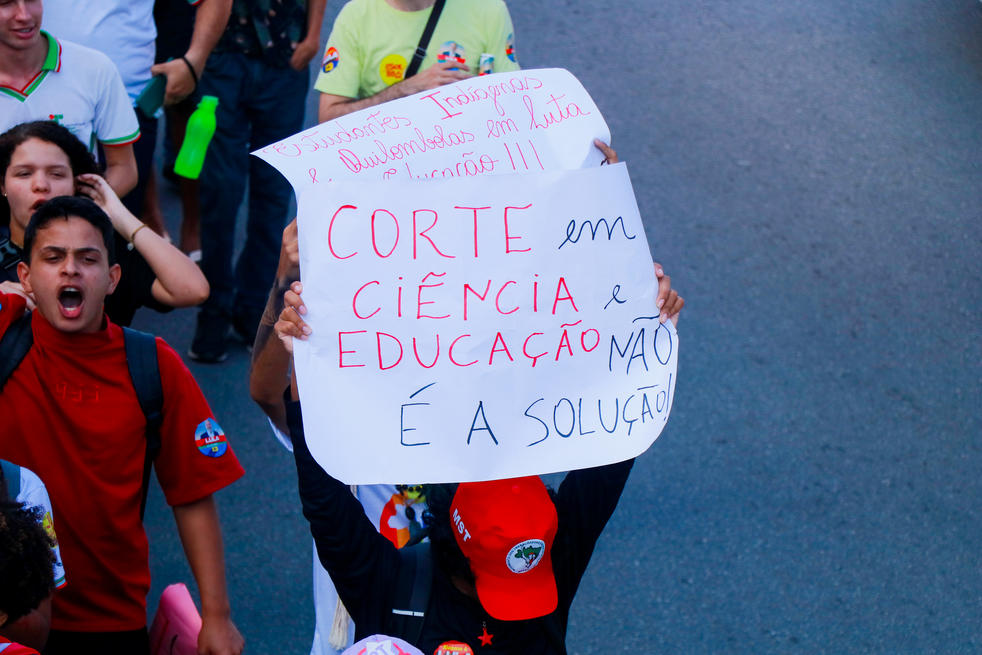 Estudantes Indígenas
e Quilombolas em luta
Educação !!!
CORTE em
CIÊNCIA e
EDUCAÇÃO NÃO
É A SOLUÇÃO!
MST
LULA
13